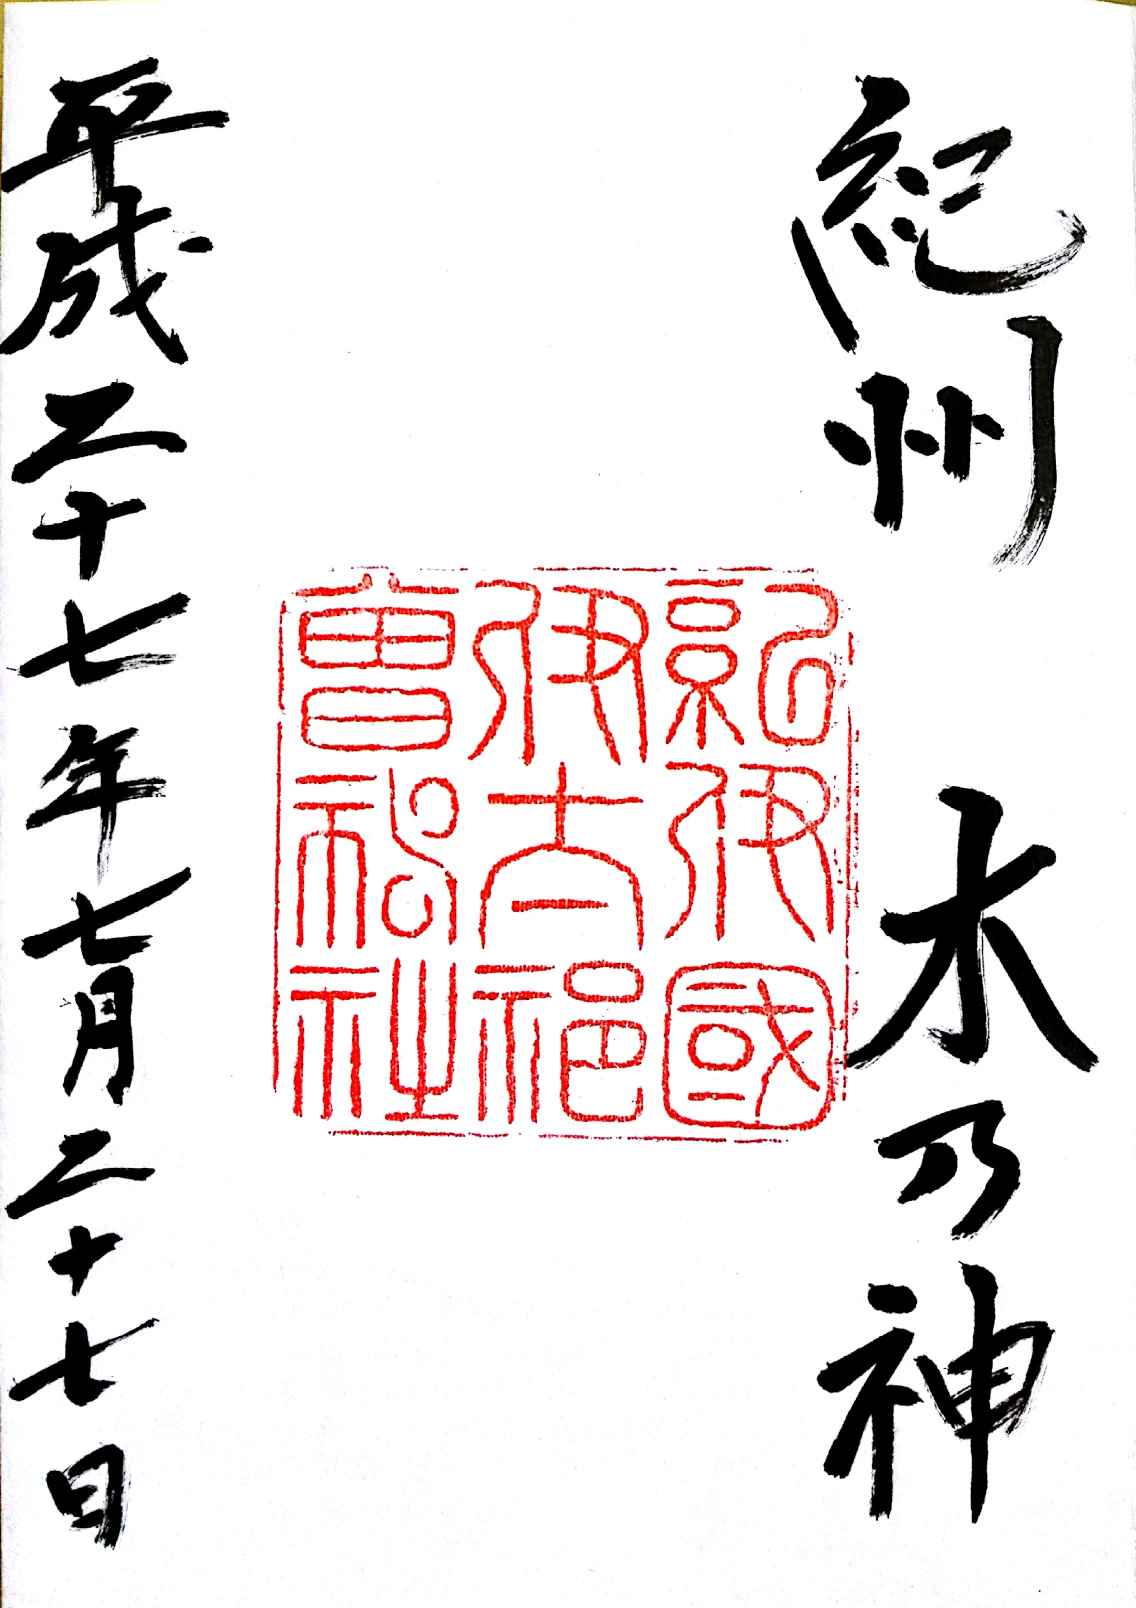 紀州 木乃神
紀伊國
伊太祁
曽神社
平成二十七年七月二十七日